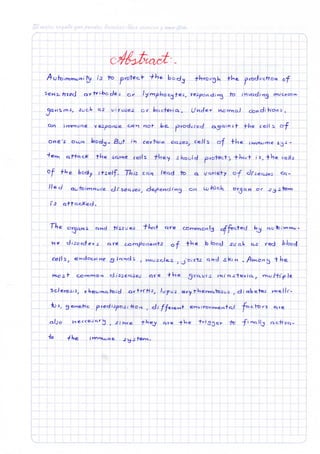 Abstract.
Autoimmunity is to protect the body through the production of
sensitized antibodies or lymphocytes, responding to invading microor-
ganisms, such as viruses or bacteria. Under normal conditions,
an immune response can not be produced against the cells of
one's own body. But in certain cases, cells of the immune sys-
tem attack the same cells they should protect; that is, the cells
of the body itself. This can lead to a variety of diseases ca-
lled autoimmune diseases, depending on which organ or system
is attacked.
The organs and tissues that are commonly affected by autoimmu-
ne disorders are components of the blood such as red blood
cells, endocrine glands, muscles, joints and skin. Among the
most common diseases are the gravis miastenia, multiple
sclerosis, rheumatoid artritis, lupus erythematosus, diabetes melli-
tus, genetic predisposition, different environmental factors are
also necessary, since they are the trigger to finally activa-
te the immune system.